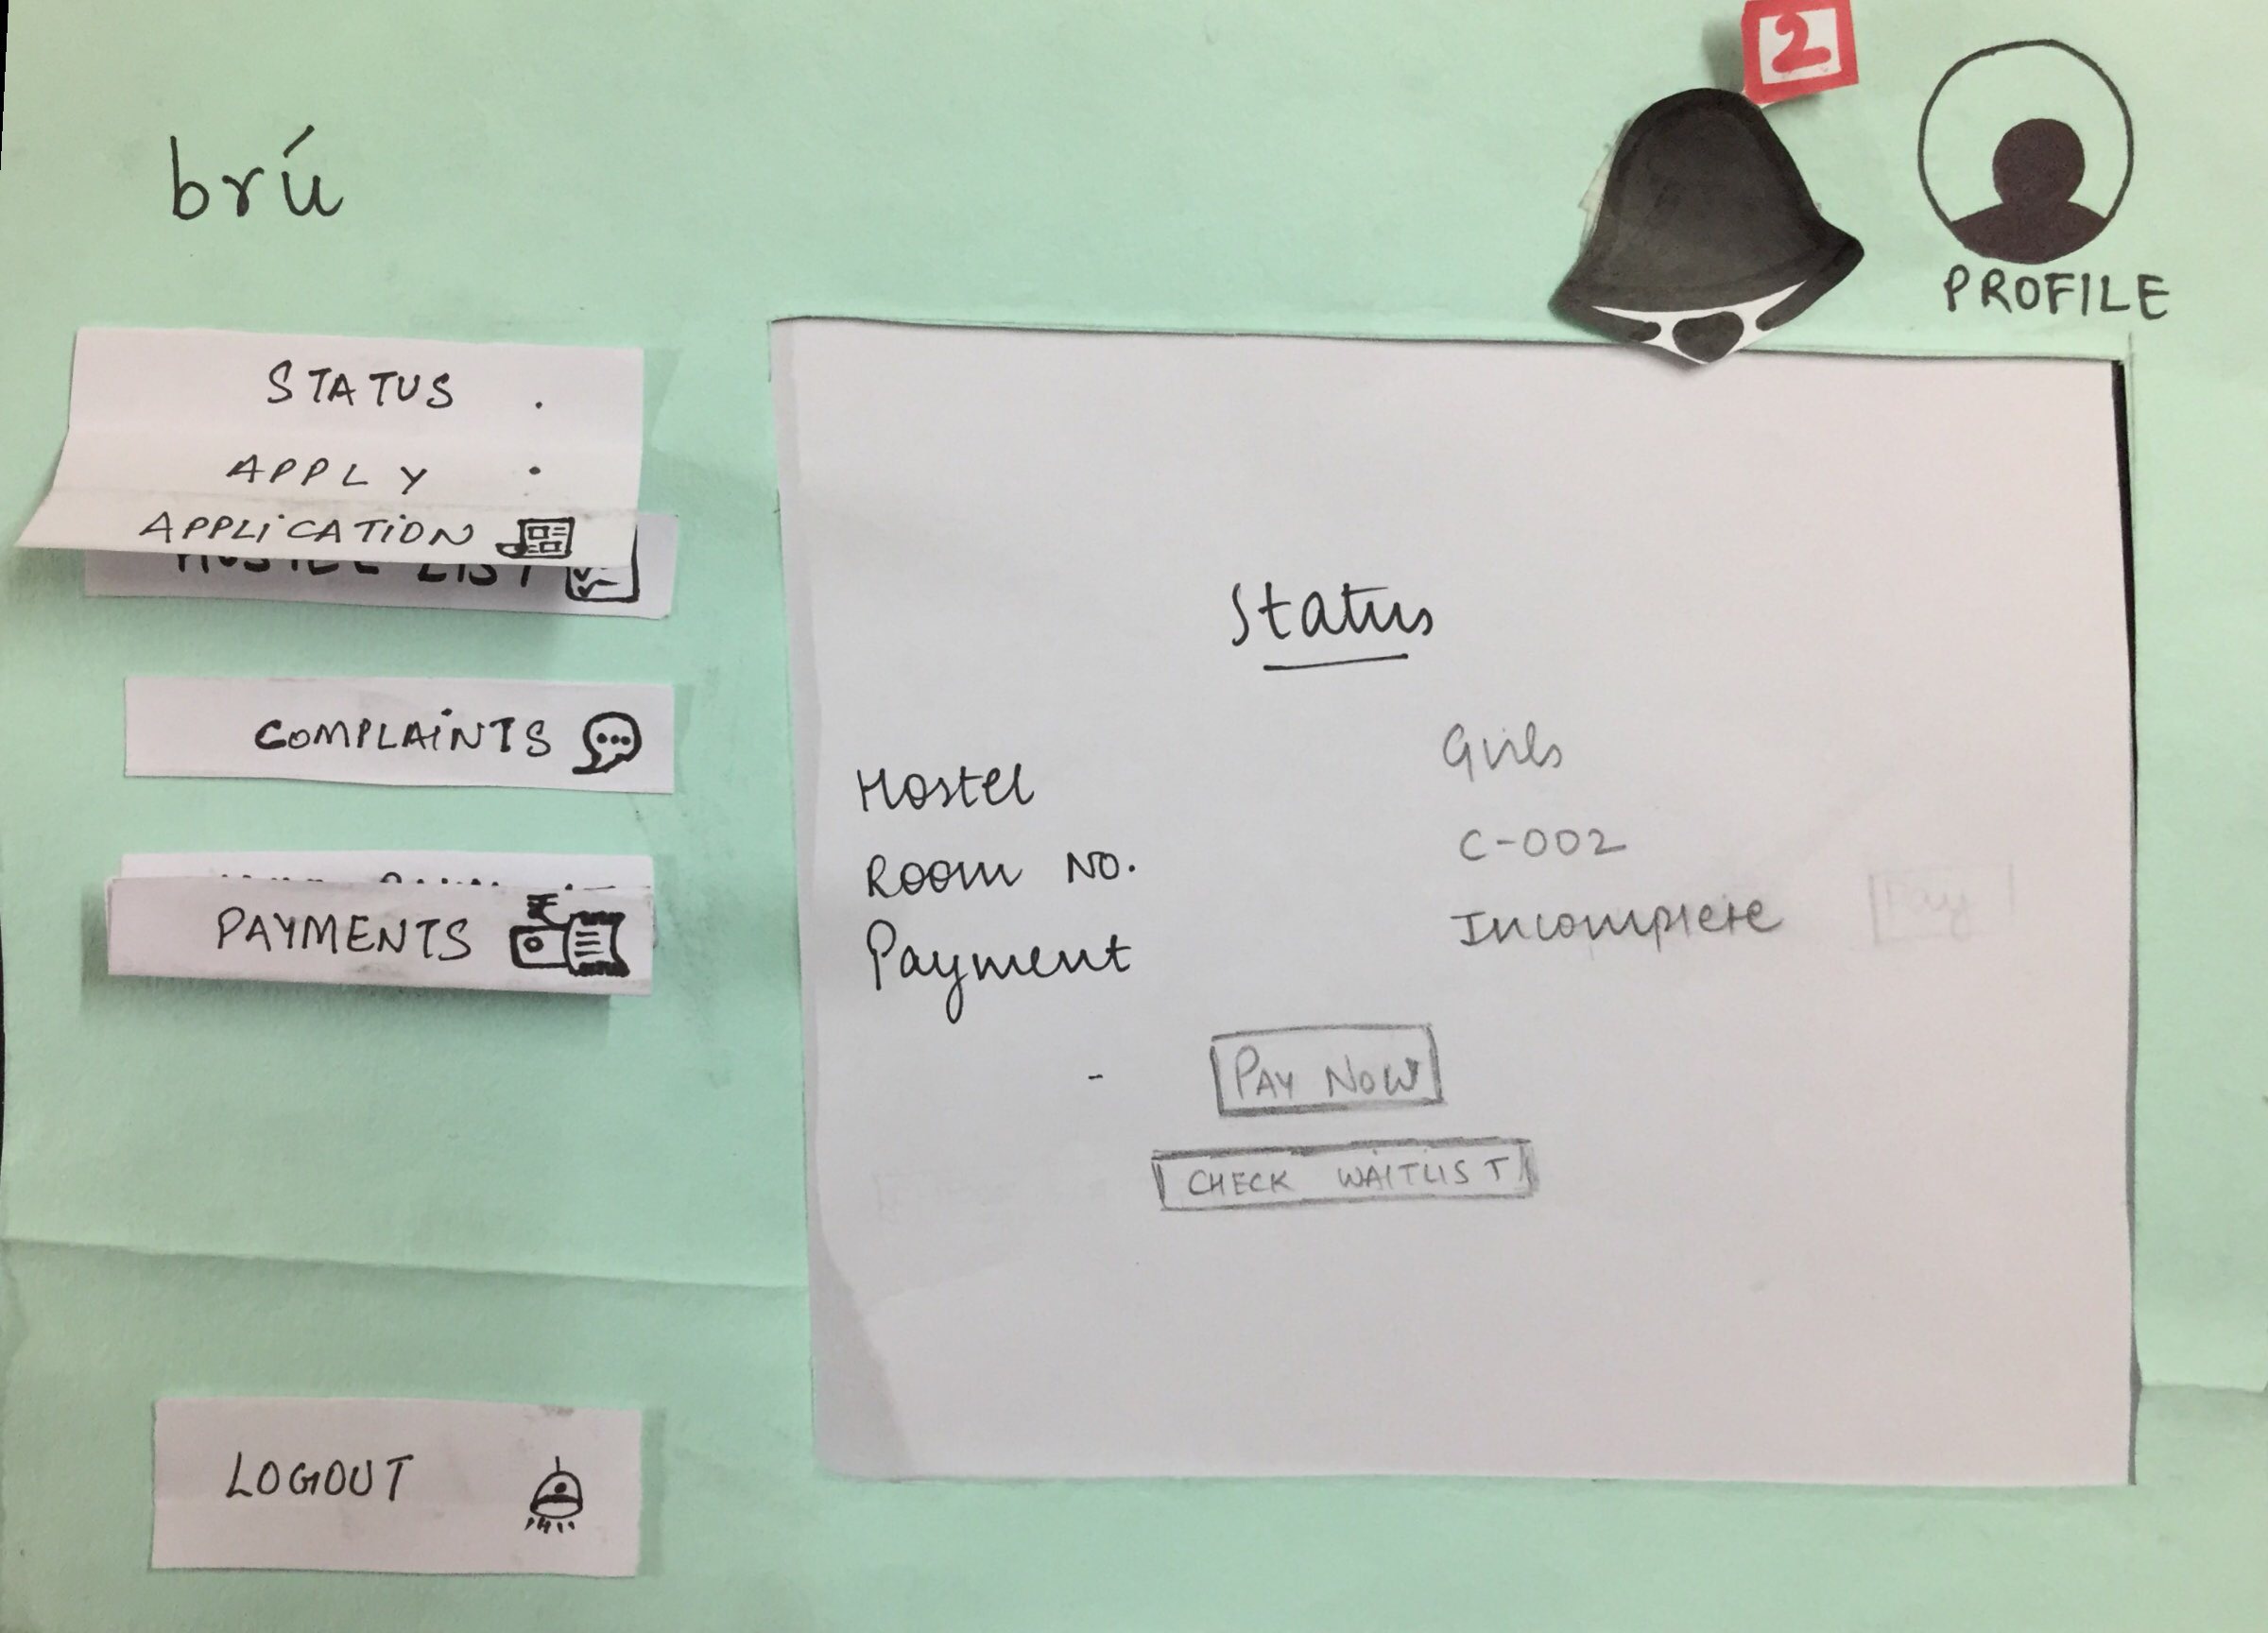 2
brú
PROFILE
STATUS .
APPLY .
APPLICATION
HOSTEL LIST
COMPLAINTS
PAYMENTS
LOGOUT
Status
Hostel Girls
Room No. C-002
Payment Incomplete
Pay
- PAY NOW
CHECK WAITLIST